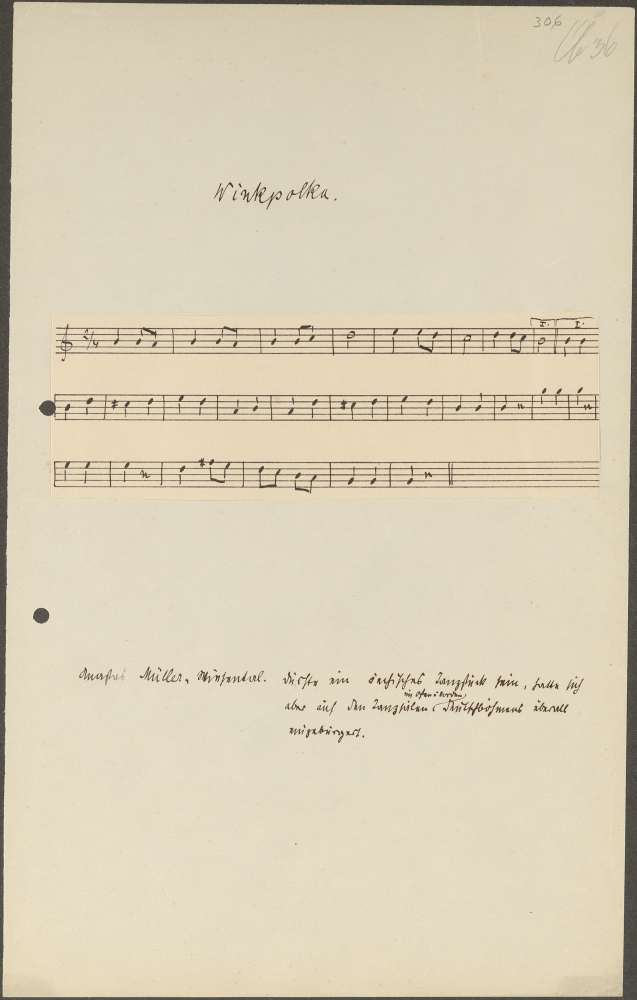 306
36
Winkpolka.
2/4
I. I.
Müller, Wiesental. Dürfte ein čechisches Tanzstück sein, hatte sich
aber auf den Tanzsälen Deutschböhmens überall
eingebürgert.